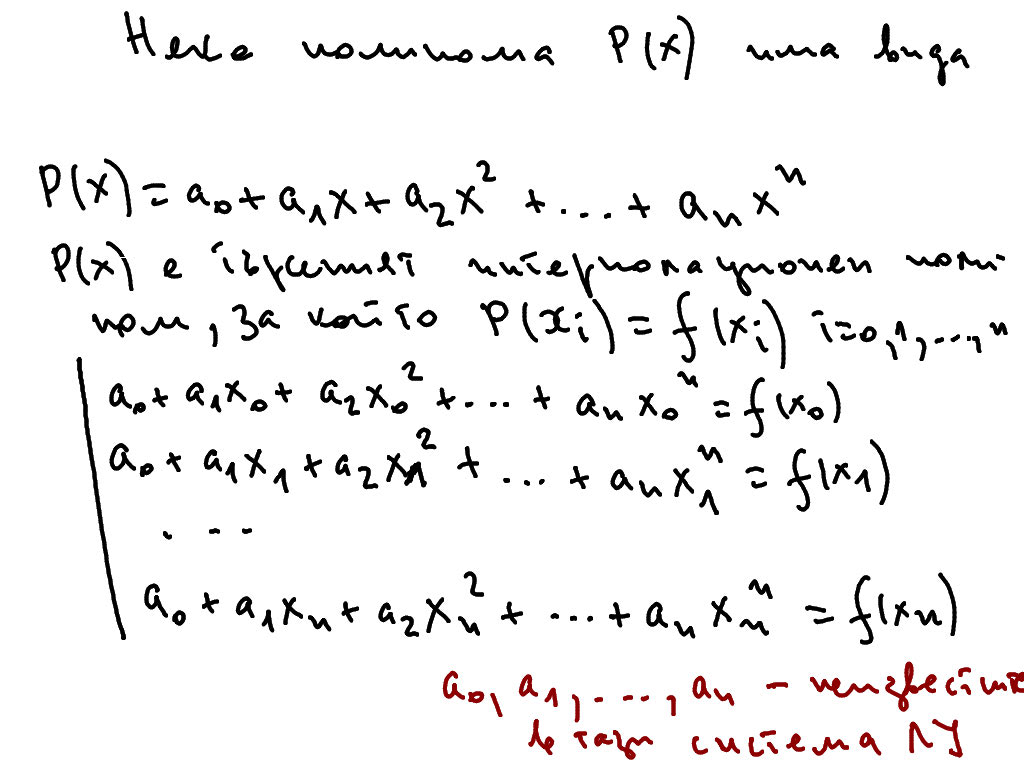 Нека полинома P(x) има вида
P(x) = a₀ + a₁x + a₂x² + ... + aₙxⁿ
P(x) е търсният интерполационен поли
ном, за който P(xᵢ) = f(xᵢ) i=0,1,...,n
a₀ + a₁x₀ + a₂x₀² + ... + aₙx₀ⁿ = f(x₀)
a₀ + a₁x₁ + a₂x₁² + ... + aₙx₁ⁿ = f(x₁)
. - -
a₀ + a₁xₙ + a₂xₙ² + ... + aₙxₙⁿ = f(xₙ)
a₀, a₁, ..., aₙ - неизвестните
в тази система ЛУ